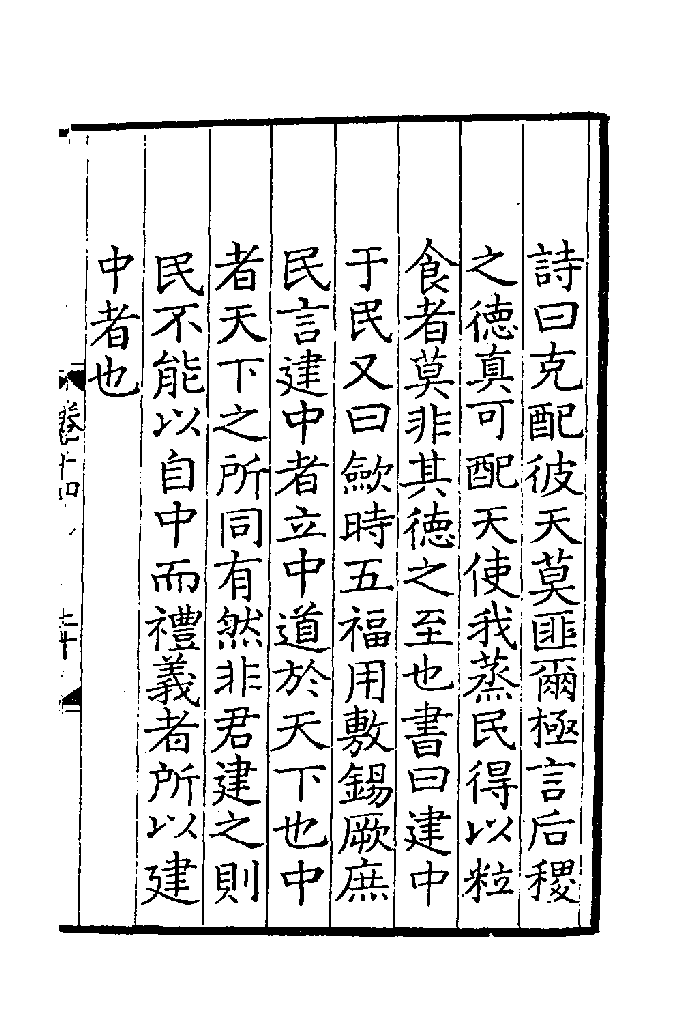 詩曰克配彼天莫匪爾極言后稷
之徳真可配天使我蒸民得以粒
食者莫非其徳之至也書曰建中
于民又曰歛時五福用敷錫厥庶
民言建中者立中道於天下也中
者天下之所同有然非君建之則
民不能以自中而禮義者所以建
中者也